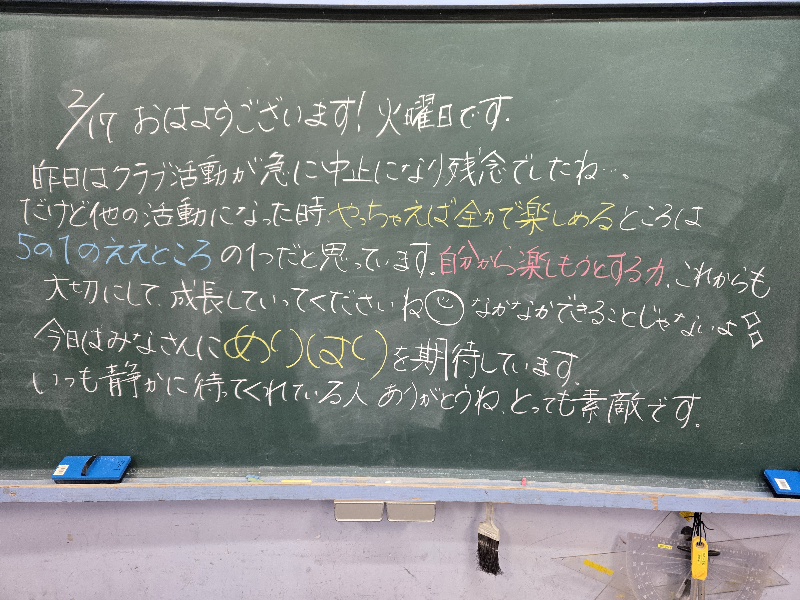 2/17 おはようございます! 火曜日です.
昨日はクラブ活動が急に中止になり残念でしたね…。
だけど他の活動になった時やっちゃえば全力で楽しめるところは
5の1のええところの1つだと思っています.自分から楽しもうとする力、これからも
大切にして、成長していってくださいね なかなかできることじゃないよ
今日はみなさんにめりはりを期待しています.
いつも静かに待ってくれている人 ありがとうね、とっても素敵です。